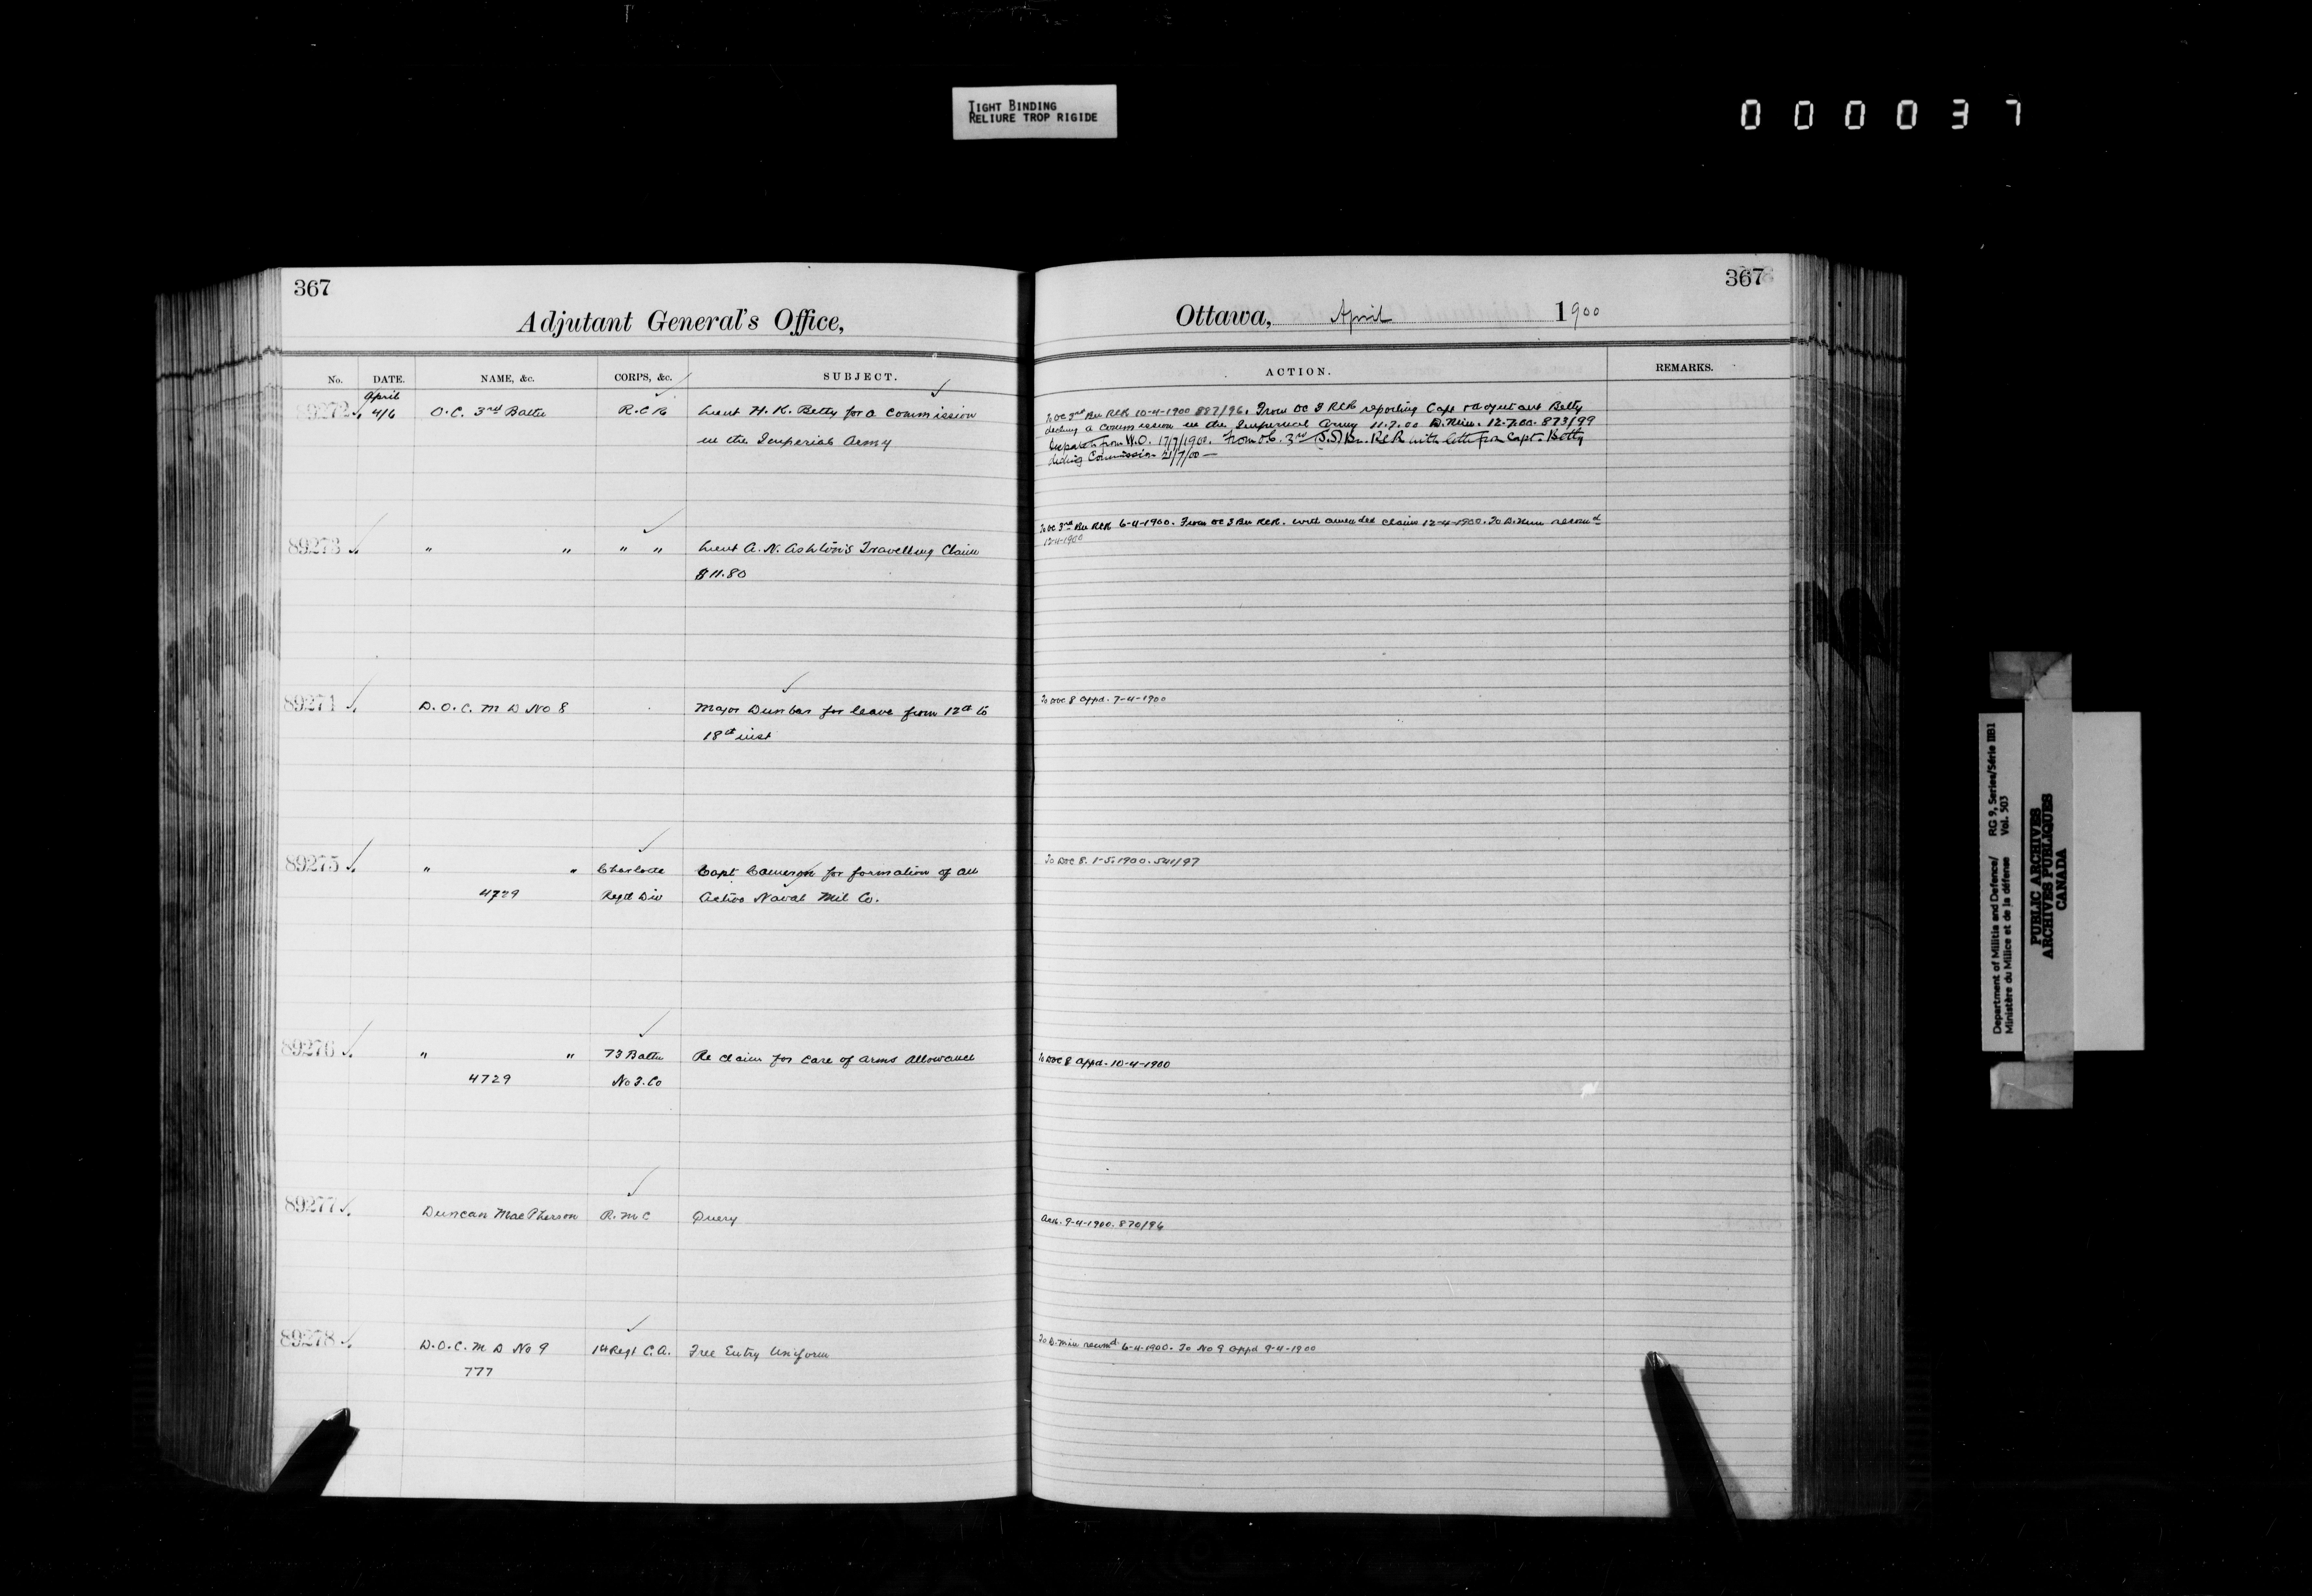 TIGHT BINDING
RELIURE TROP RIGIDE
000037
367
Adjutant General's Office,
No. DATE. NAME, &c. CORPS, &c. SUBJECT.
April
89272 4/6 O.C. 3rd Battn R.C.R Lieut H. K. Betty for a Commission
in the Imperial Army
89273 " " " " Lieut A. N. Ashton's Travelling Claim
$11.80
89274 D.O.C. M D No 8 Major Dunbar for leave from 12th to
18th inst
89275 " " Charlotte Capt Cameron for formation of an
4729 Regtl Div Active Naval Mil Co.
89276 " " 73 Battn Re claim for Care of Arms Allowance
4729 No 3. Co
89277 Duncan MacPherson R.M.C Query
89278 D.O.C. M D No 9 1st Regt C.A. Free Entry Uniform
777
367
Ottawa, April 1900
ACTION. REMARKS.
To OC 3rd Bn RCR 10-4-1900 887/96. From OC 3 RCR reporting Capt & Adjutant Betty
decling a Commission in the Imperial Army 11.7.00 D. Min. 12-7.00. 873/99
from W.O. 17/7/1900. From O.C. 3rd (S.S) Bn. RCR with letter from Capt. Betty
decling Commission 21/7/00 —
To OC 3rd Bn RCR 6-4-1900. From OC 3 Bn RCR. with amended claim 12-4-1900. To D. Min recomd
12-4-1900
To DOC 8 appd. 7-4-1900
To DOC 8. 1-5.1900. 541/97
To DOC 8 appd. 10-4-1900
Ack. 9-4-1900. 870/96
To D. Min recomd 6-4-1900. To No 9 appd 9-4-1900
Department of Militia and Defence/ RG 9, Series/Série IIB1
Ministère du Milice et de la défense Vol. 503
PUBLIC ARCHIVES
ARCHIVES PUBLIQUES
CANADA